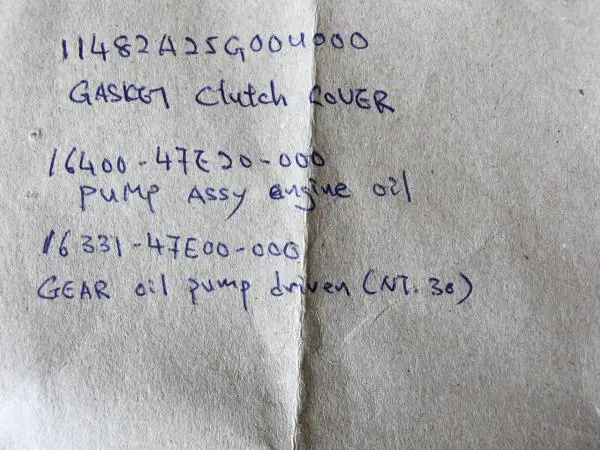 11482A25G00U000
GASKET Clutch COVER
16400-47E20-000
PUMP ASSY engine oil
16331-47E00-000
GEAR oil pump driven (NT. 30)